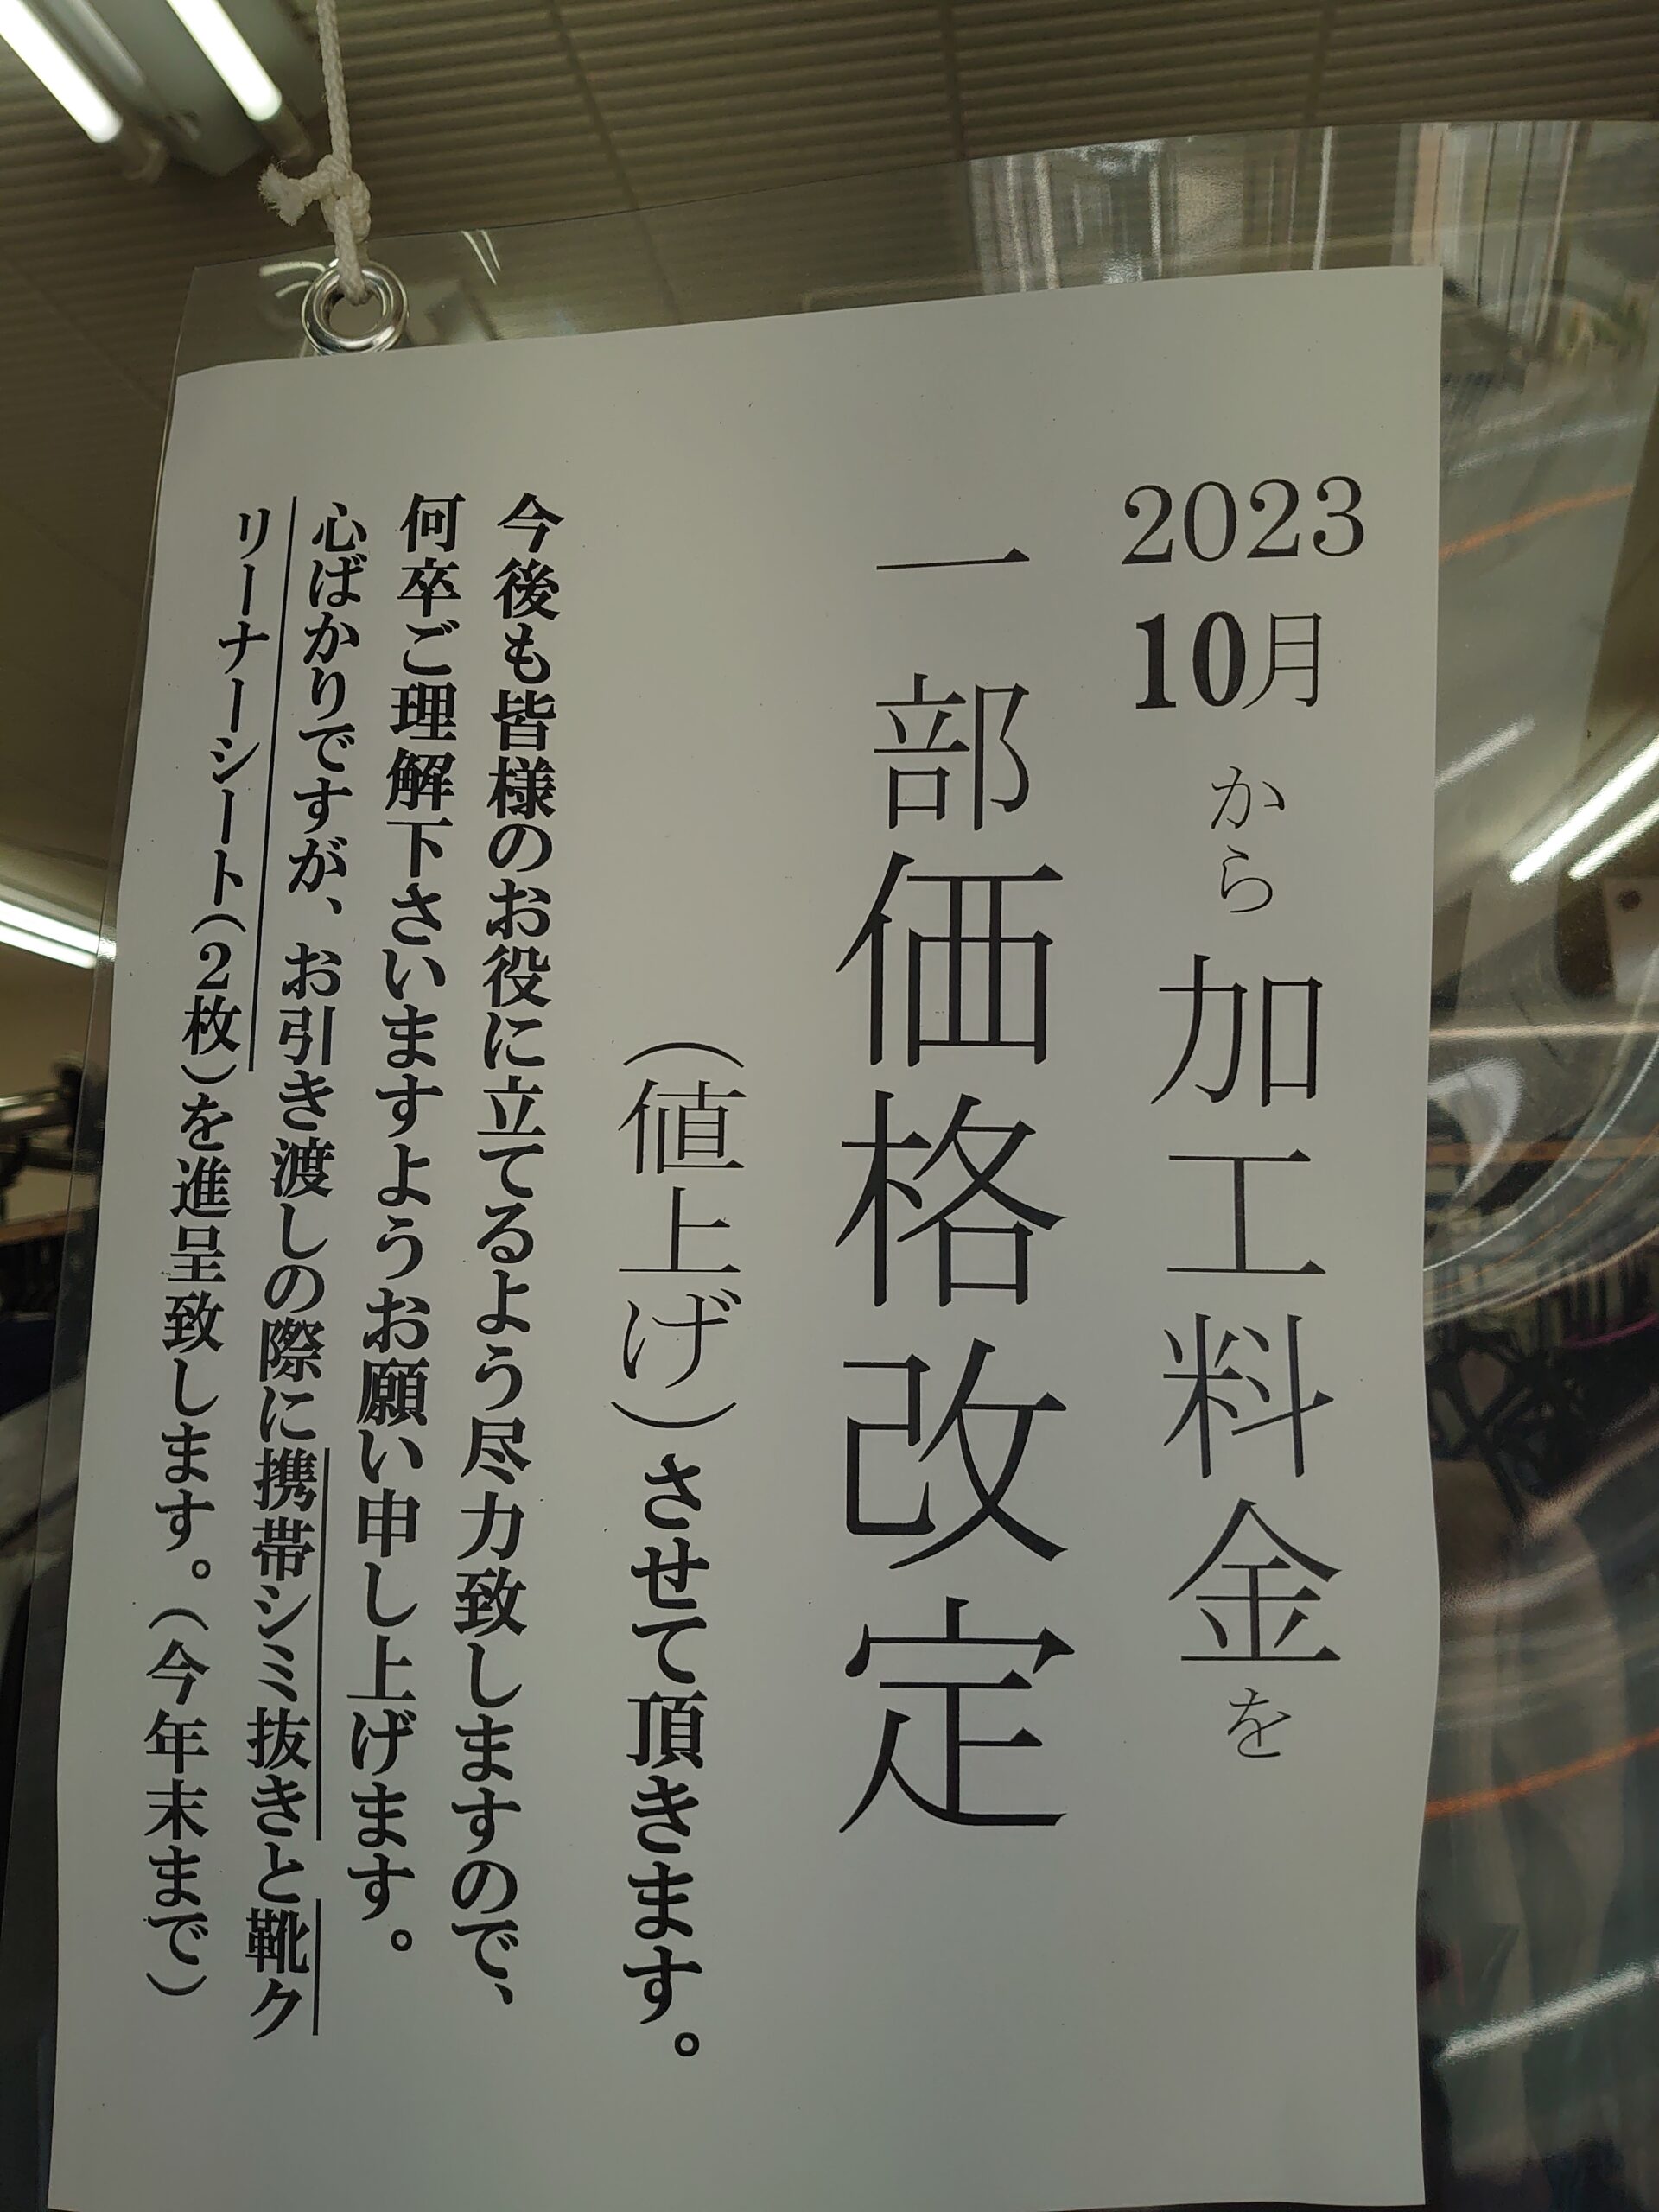 2023
10月から加工料金を
一部価格改定
（値上げ）させて頂きます。
今後も皆様のお役に立てるよう尽力致しますので、
何卒ご理解下さいますようお願い申し上げます。
心ばかりですが、お引き渡しの際に携帯シミ抜きと靴ク
リーナーシート（2枚）を進呈致します。（今年末まで）